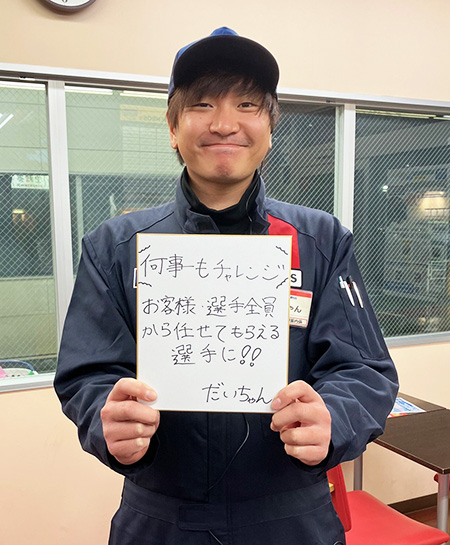 何事もチャレンジ
お客様・選手全員
から任せてもらえる
選手に!!
だいちゃん
S
ゃん